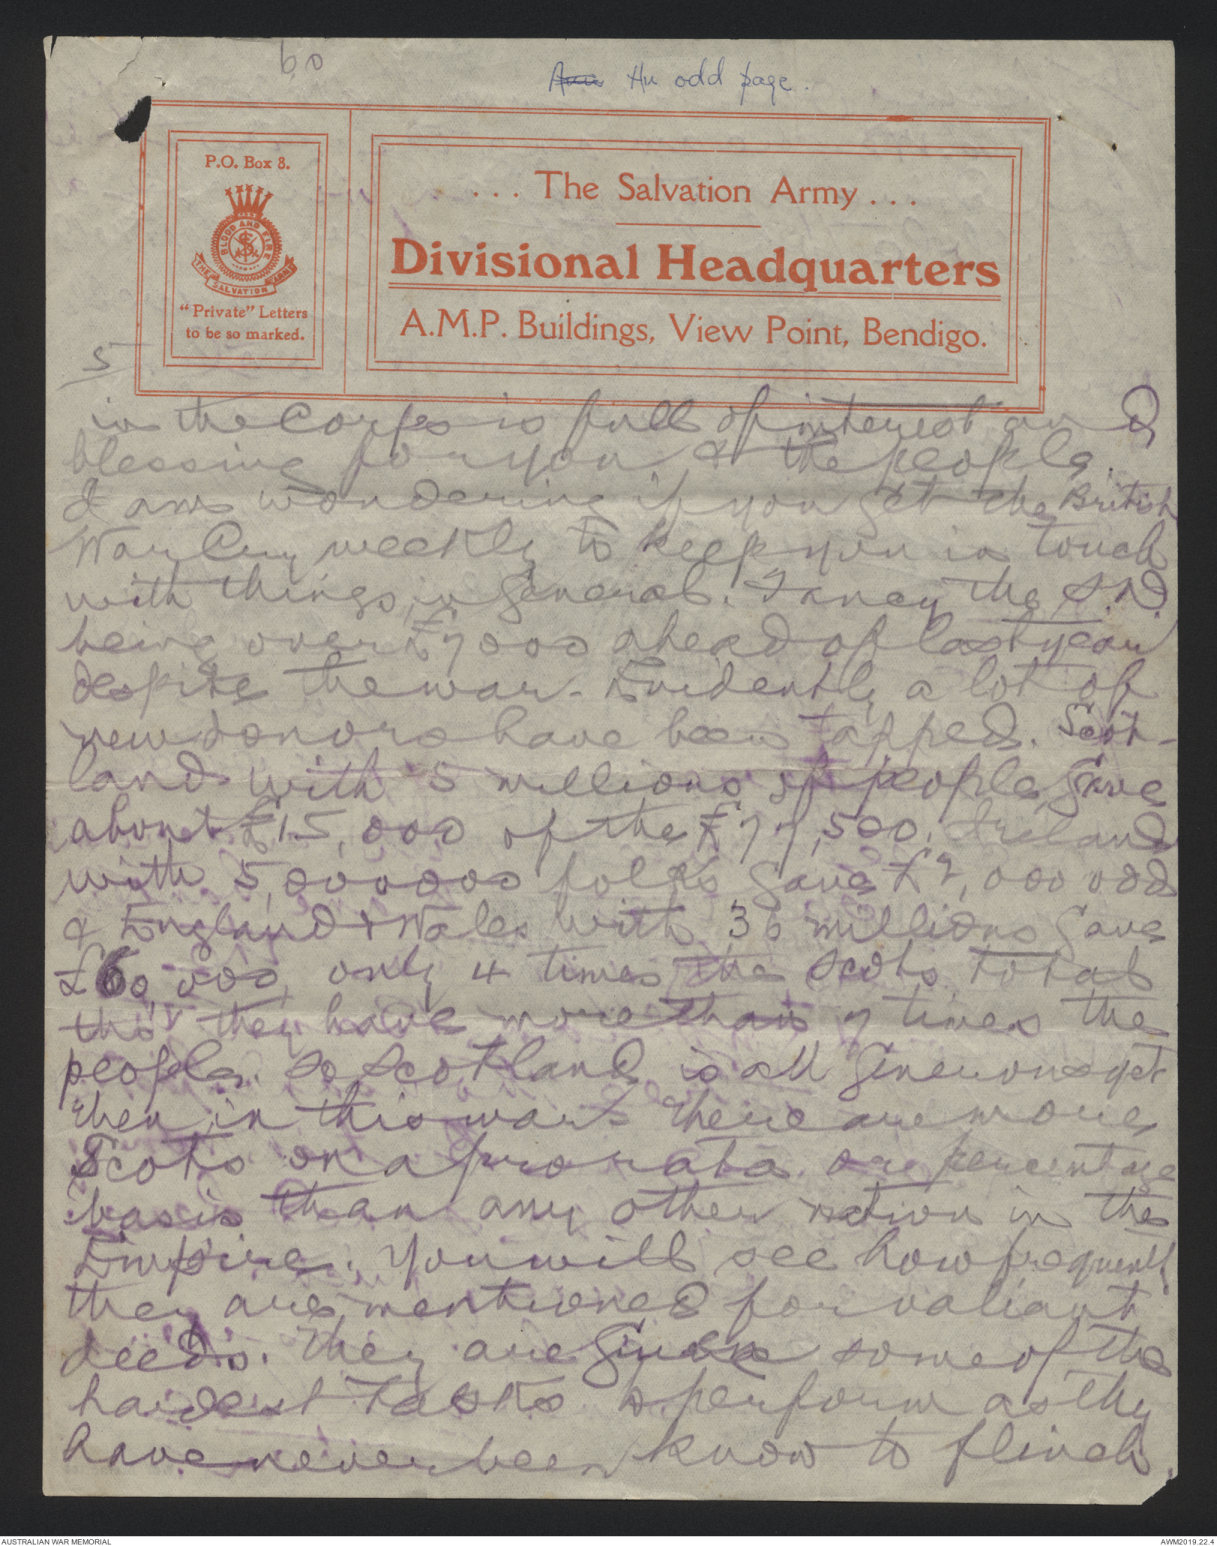 60
An odd page.
P.O. Box 8.
BLOOD AND FIRE
THE SALVATION ARMY
"Private" Letters
to be so marked.
... The Salvation Army ...
Divisional Headquarters
A.M.P. Buildings, View Point, Bendigo.
5
in the Corps is full of interest and
blessing for you & the people.
I am wondering if you get the British
War Cry weekly to keep you in touch
with things in General. Fancy the S.D.
being over £7000 ahead of last year
despite the war. Evidently a lot of
new donors have been tapped. Scot-
land with 5 millions of people, gave
about £15,000 of the £77,500. Ireland
with 5,000000 folks gave £2,000 odd
& England & Wales with 36 millions gave
£60,000, only 4 times the Scots total
tho' they have more than 7 times the
people. So Scotland is all generous yet
then in this war there are more
Scots on a pro rata or percentage
basis than any other nation in the
Empire. You will see how frequently
they are mentioned for valiant
deeds. They are given some of the
hardest tasks to perform as they
have never been know to flinch.
AUSTRALIAN WAR MEMORIAL
AWM2019.22.4